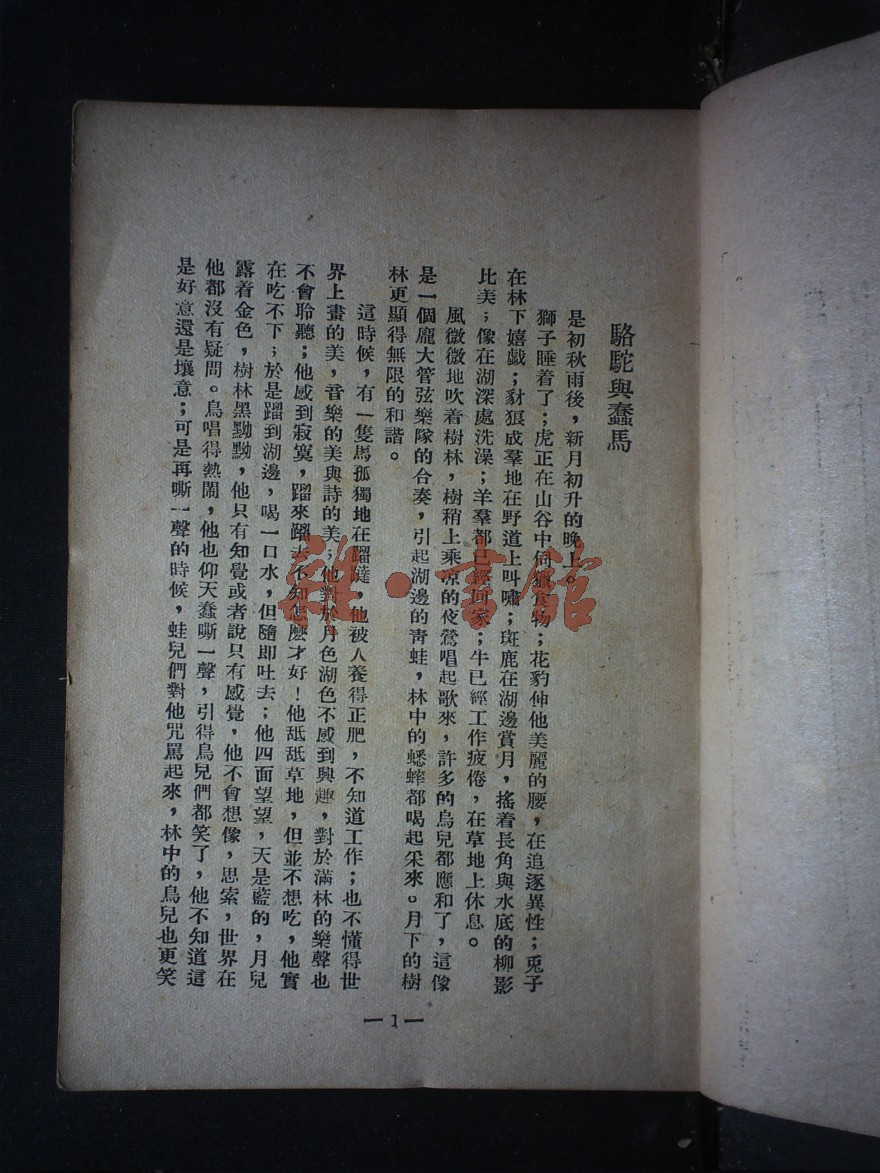 駱駝與蠢馬
是初秋雨後，新月初升的晚上。
獅子睡着了；虎正在山谷中伺獵食物；花豹伸他美麗的腰，在追逐異性；兎子
在林下嬉戱；豺狼成羣地在野道上叫嘯；斑鹿在湖邊賞月，搖着長角與水底的柳影
比美；像在湖深處洗澡；羊羣都已經回家；牛已經工作疲倦，在草地上休息。
風微微地吹着樹林，樹稍上乘凉的夜鶯唱起歌來，許多的鳥兒都應和了，這像
是一個龐大管弦樂隊的合奏，引起湖邊的靑蛙，林中的蟋蟀都喝起采來。月下的樹
林更顯得無限的和諧。
這時候，有一隻馬孤獨地在蹓躂，他被人養得正肥，不知道工作；也不懂得世
界上畫的美，音樂的美與詩的美；他對於月色湖色不感到興趣，對於滿林的樂聲也
不會聆聽；他感到寂寞，蹓來蹓去不知怎麽才好！他舐舐草地，但並不想吃，他實
在吃不下；於是蹓到湖邊，喝一口水，但隨即吐去；他四面望望，天是藍的，月兒
露着金色，樹林黑黝黝，他只有知覺或者說只有感覺，他不會想像，思索，世界在
他都沒有疑問。鳥唱得熱鬧，他也仰天蠢嘶一聲，引得鳥兒們都笑了，他不知道這
是好意還是壤意；可是再嘶一聲的時候，蛙兒們對他咒駡起來，林中的鳥兒也更笑
— 1 —
雜·書館